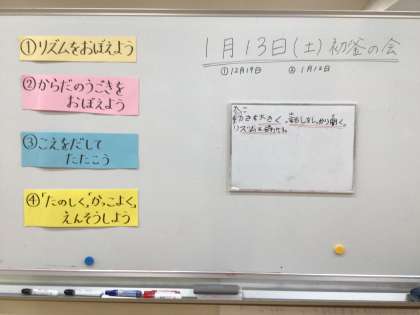 ①リズムをおぼえよう
②からだのうごきを
おぼえよう
③こえをだして
たたこう
④「たのしく、かっこよく」
えんそうしよう
1月13日(土)初釜の会
①12月19日 ②1月12日
動きを大きく、
リズムを合わせる